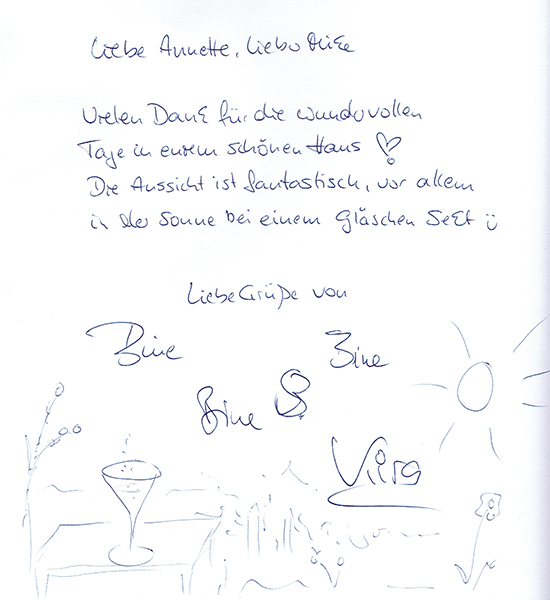 Liebe Annette, Liebe Mike
Vielen Dank für die wundervollen
Tage in eurem schönen Haus
Die Aussicht ist fantastisch, vor allem
in der Sonne bei einem Gläschen Sekt
Liebe Grüße von
Bine
Bine
Bine S.